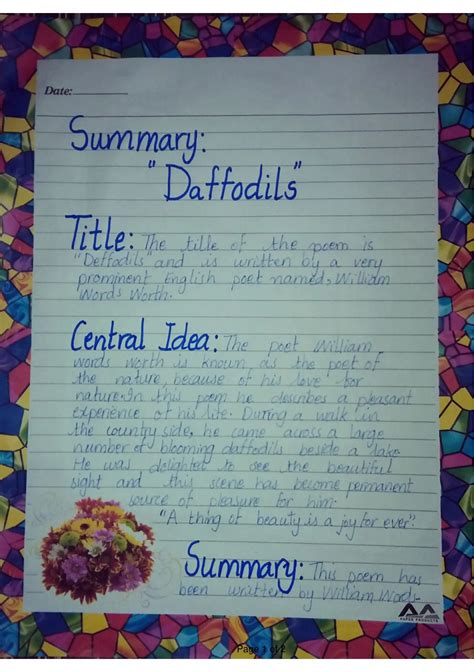 Date:
Summary:
"Daffodils"
Title: The title of the poem is
"Deffodils" and is written by a very
prominent English poet named, William
Words Worth.
Central Idea: The poet William
words worth is known as the poet of
the nature, because of his love for
nature. In this poem he describes a pleasant
experience of his life. During a walk in
the country side, he came across a large
number of blooming daffodils beside a lake.
He was delighted to see the beautiful
sight and this scene has become permanent
source of pleasure for him.
"A thing of beauty is a joy for ever".
Summary: This poem has
been written by William Words-
PAPER PRODUCTS
Page 1 of 2